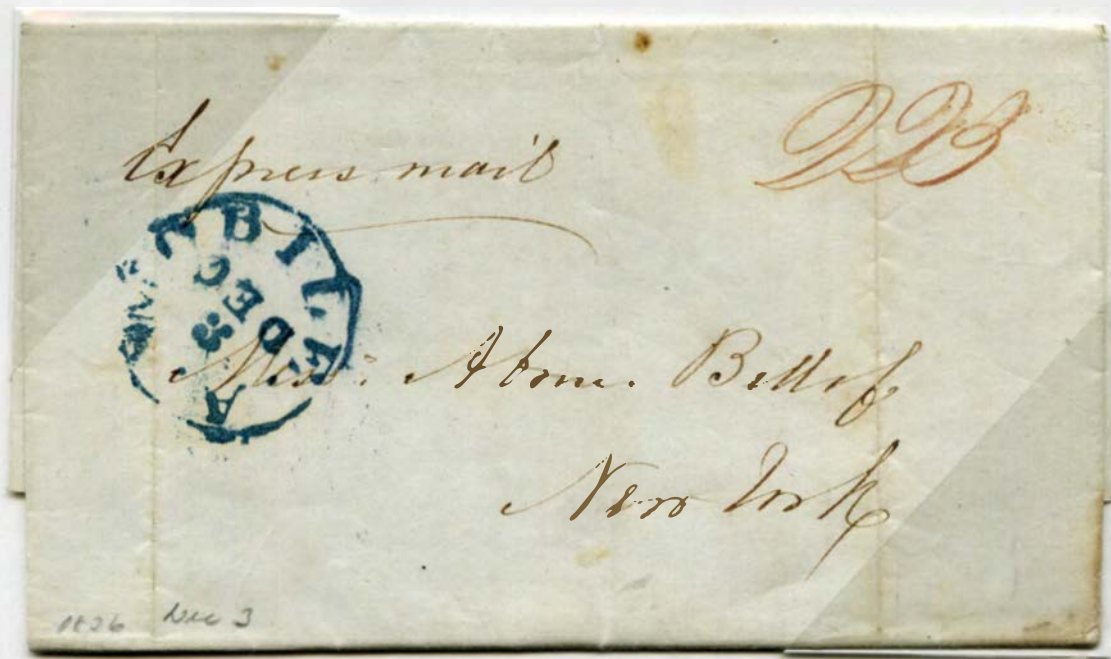 Express mail
MOBILE
DEC
3
A
Mess: Abm. Bell & Co
New York
Dec 3